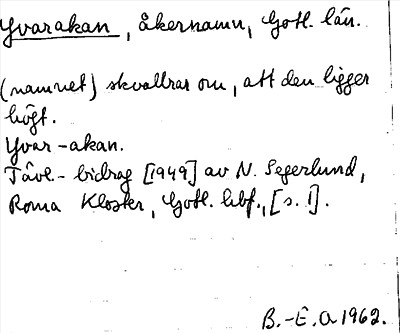 Yvarakan, åkernamn, Gotl. län.
(namnet) skvallrar om, att den ligger
högt.
Yvar-akan.
Tävl.-bidrag [1949] av N. Segerlund,
Roma Kloster, Gotl. hbf., [s. 1].
B.-E. O. 1962.